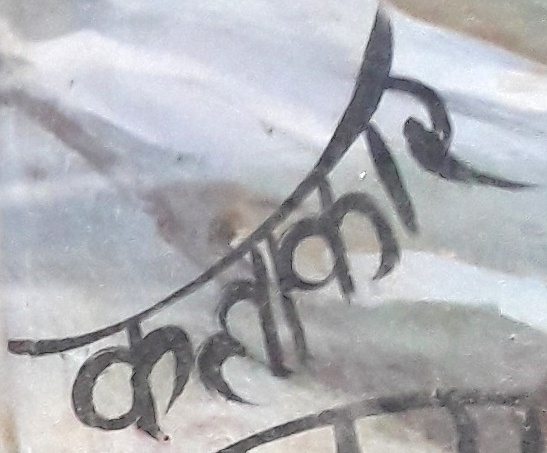 कलाकार